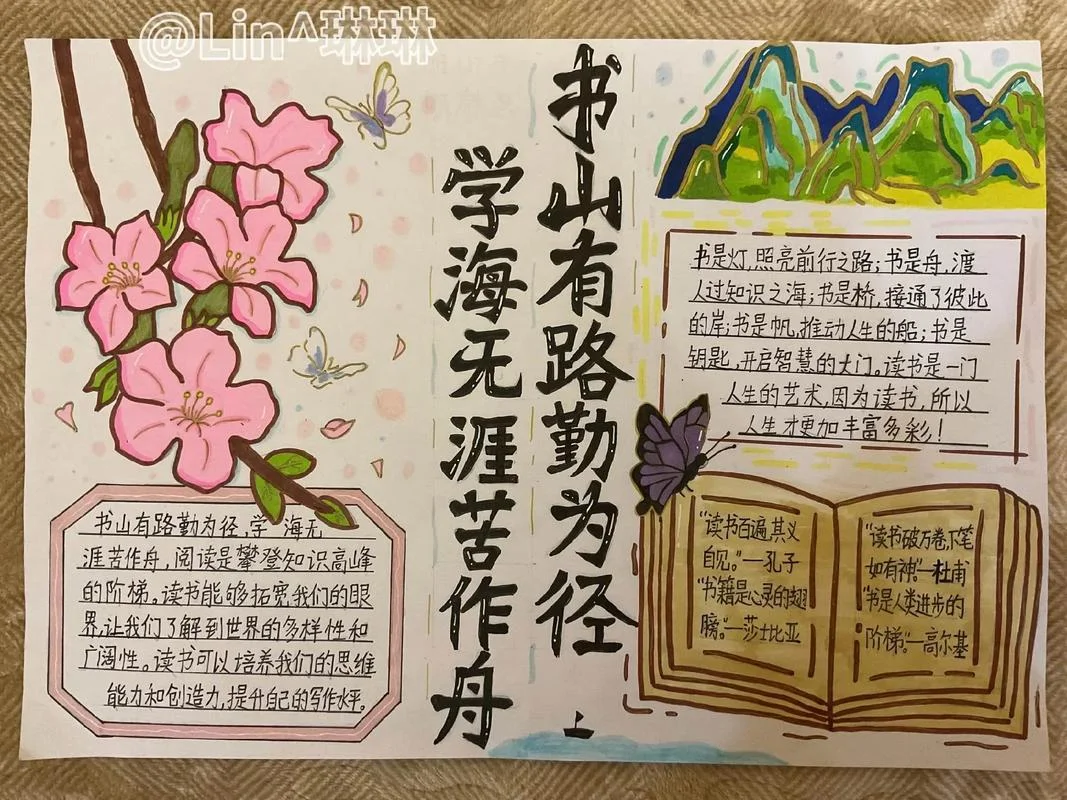 @Lin^琳琳
书山有路勤为径
学海无涯苦作舟
书是灯,照亮前行之路;书是舟,渡
人过知识之海;书是桥,接通了彼此
的岸;书是帆,推动人生的船;书是
钥匙,开启智慧的大门。读书是一门
人生的艺术,因为读书,所以
人生才更加丰富多彩!
书山有路勤为径,学 海无
涯苦作舟,阅读是攀登知识高峰
的阶梯。读书能够拓宽我们的眼
界,让我们了解到世界的多样性和
广阔性。读书可以培养我们的思维
能力和创造力,提升自己的写作水平。
“读书百遍,其义
自见。”—孔子
“书籍是心灵的翅
膀。”—莎士比亚
“读书破万卷,下笔
如有神”—杜甫
“书是人类进步的
阶梯”—高尔基